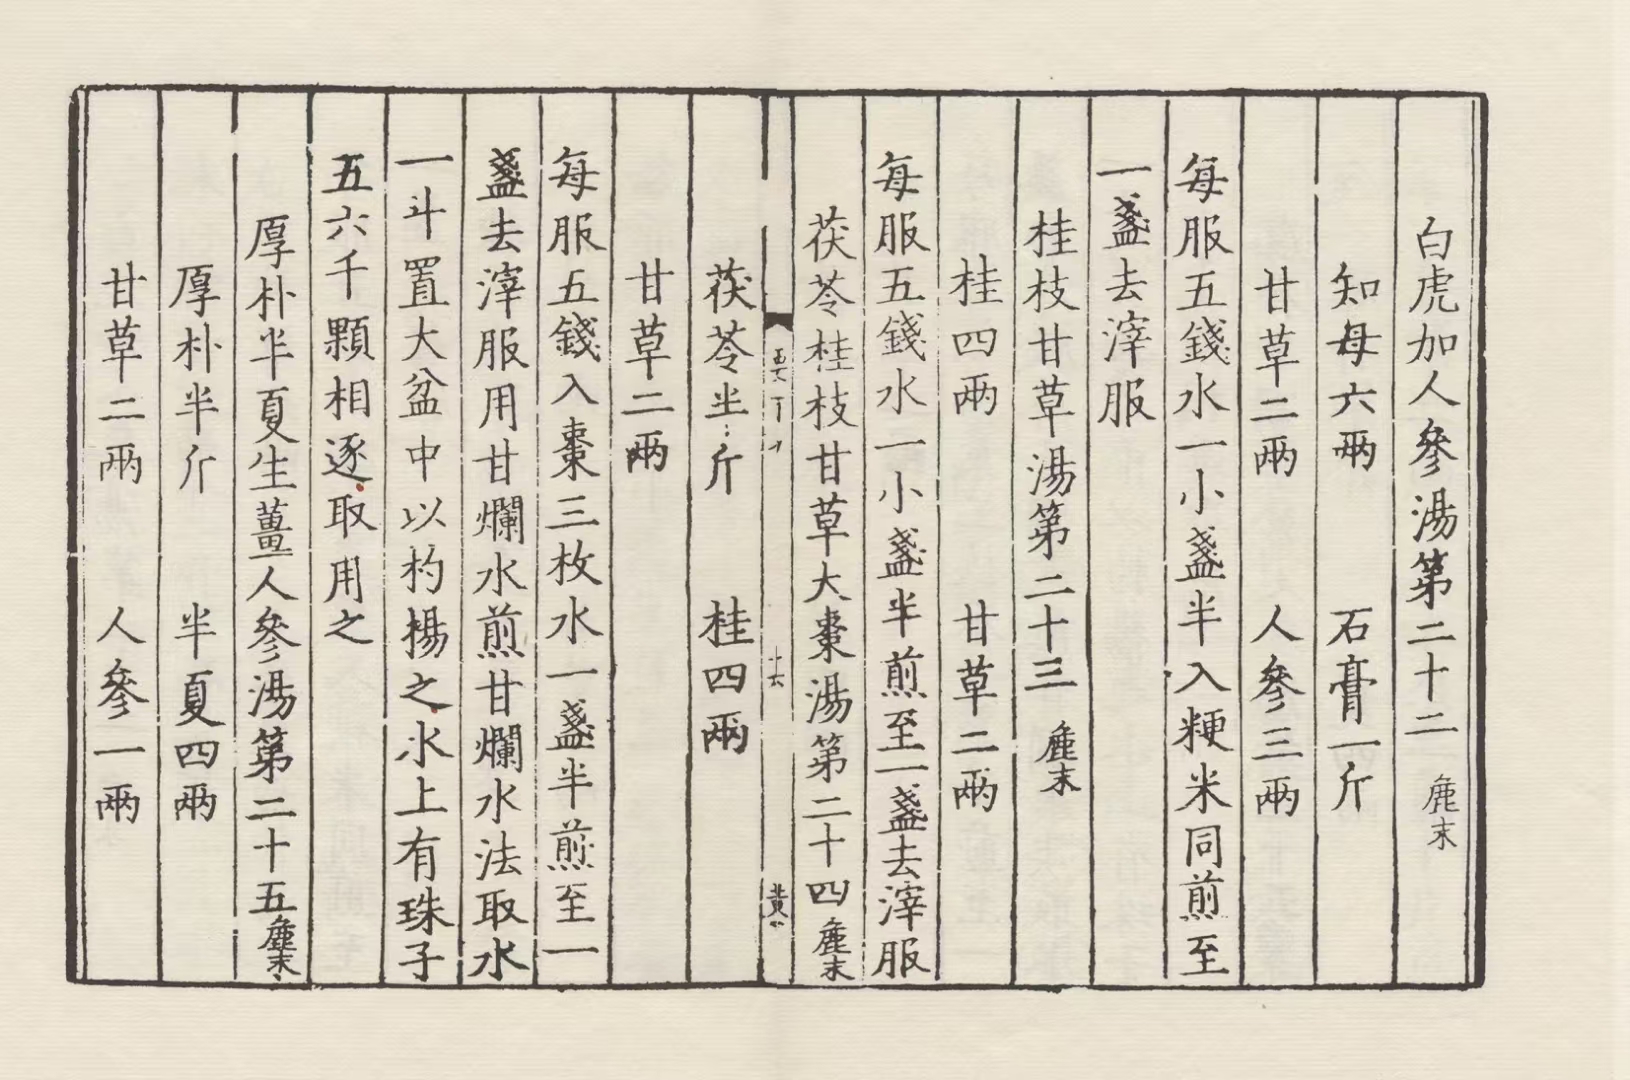 白虎加人參湯第二十二麁末
知母六兩 石膏一斤
甘草二兩 人參三兩
每服五錢水一小盞半入粳米同煎至
一盞去滓服
桂枝甘草湯第二十三麁末
桂四兩 甘草二兩
每服五錢水一小盞半煎至一盞去滓服
茯苓桂枝甘草大棗湯第二十四麁末
十六
茯苓半斤 桂四兩
甘草二兩
每服五錢入棗三枚水一盞半煎至一
盞去滓服用甘爛水煎甘爛水法取水
一斗置大盆中以杓揚之水上有珠子
五六千顆相逐取用之
厚朴半夏生薑人參湯第二十五麁末
厚朴半斤 半夏四兩
甘草二兩 人參一兩